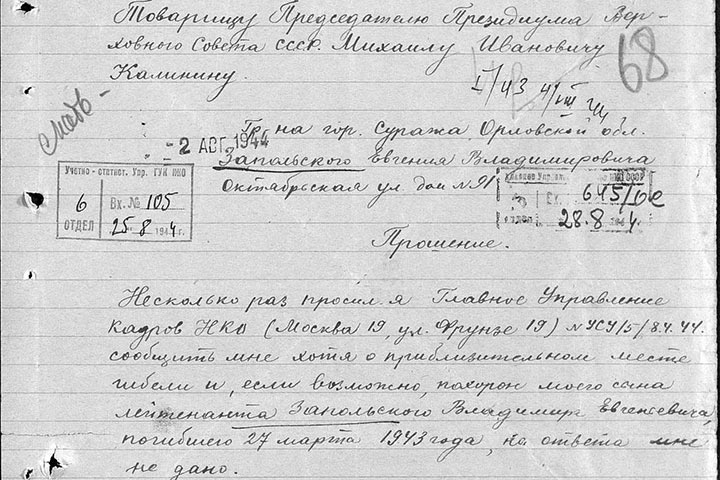 Товарищу Председателю Президиума Вер-
ховного Совета СССР. Михаилу Ивановичу
Калинину.
68
I/43
- 2 АВГ. 1944
Гр-на гор. Суража, Орловской обл.
Запольского Евгения Владимировича
Октябрьская ул. дом № 91
Учетно-статист. Упр. ГУК НКО
6 ОТДЕЛ
Вх. № 105
25 8 1944 г.
Вх. 645/06
28.8 1944.
Прошение.
Несколько раз просил я Главное Управление
кадров НКО (Москва 19, ул. Фрунзе 19) № УСУ/5/8.4.44.
сообщить мне хотя о приблизительном месте
гибели и, если возможно, похорон моего сына
лейтенанта Запольского Владимира Евгеньевича,
погибшего 27 марта 1943 года, но ответа мне
не дано.